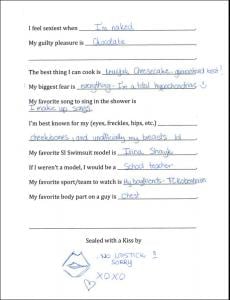 I feel sexiest when I'm naked
My guilty pleasure is Chocolate
The best thing I can cook is Newyork Cheesecake - guaranteed best!
My biggest fear is everything - I'm a total hypochondriac
My favorite song to sing in the shower is
I make up songs.
I'm best known for my (eyes, freckles, hips, etc.)
cheekbones - and unofficially my breasts lol
My favorite SI Swimsuit model is Irina Shayk
If I weren't a model, I would be a School teacher
My favorite sport/team to watch is My boyfriends - FC København
My favorite body part on a guy is
Chest
Sealed with a Kiss by
NO LIPSTICK !!
SORRY
XOXO